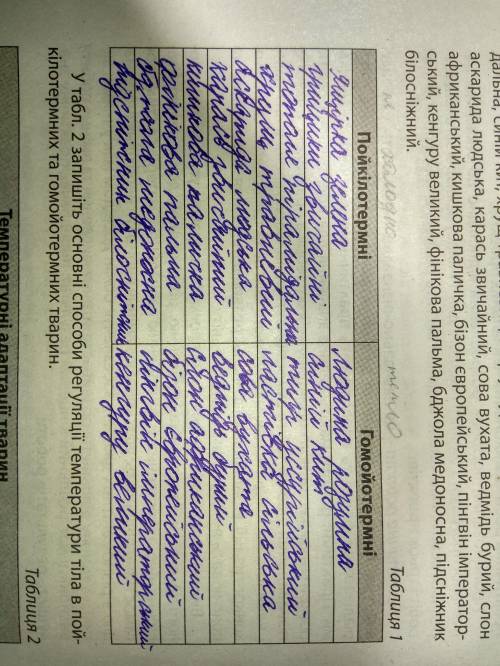 аскарида людська, карась звичайний, сова вухата, ведмідь бурий, слон
африканський, кишкова паличка, бізон європейський, пінгвін імператор-
ський, кенгуру великий, фінікова пальма, бджола медоносна, підсніжник
білосніжний.
тепло
Таблиця 1
Пойкілотермні Гомойотермні
ящірка зелена людина розумна
звичайні синій кит
тополя пірамідальна тигр уссурійський
хрущ травневий ластівка сільська
аскарида людська сова вухата
карась звичайний ведмідь бурий
кишкова паличка слон африканський
фінікова пальма бізон європейський
бджола медоносна пінгвін імператорський
підсніжник білосніжний кенгуру великий
У табл. 2 запишіть основні способи регуляції температури тіла в пой-
кілотермних та гомойотермних тварин.
Таблиця 2
Температурні адаптації тварин